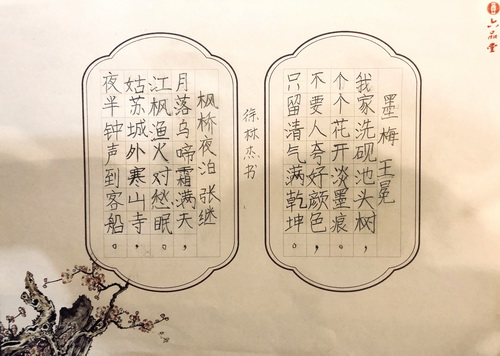 六品堂
墨梅 王冕
我家洗砚池头树，
个个花开淡墨痕。
不要人夸好颜色，
只留清气满乾坤。
徐林杰书
枫桥夜泊 张继
月落乌啼霜满天，
江枫渔火对愁眠。
姑苏城外寒山寺，
夜半钟声到客船。